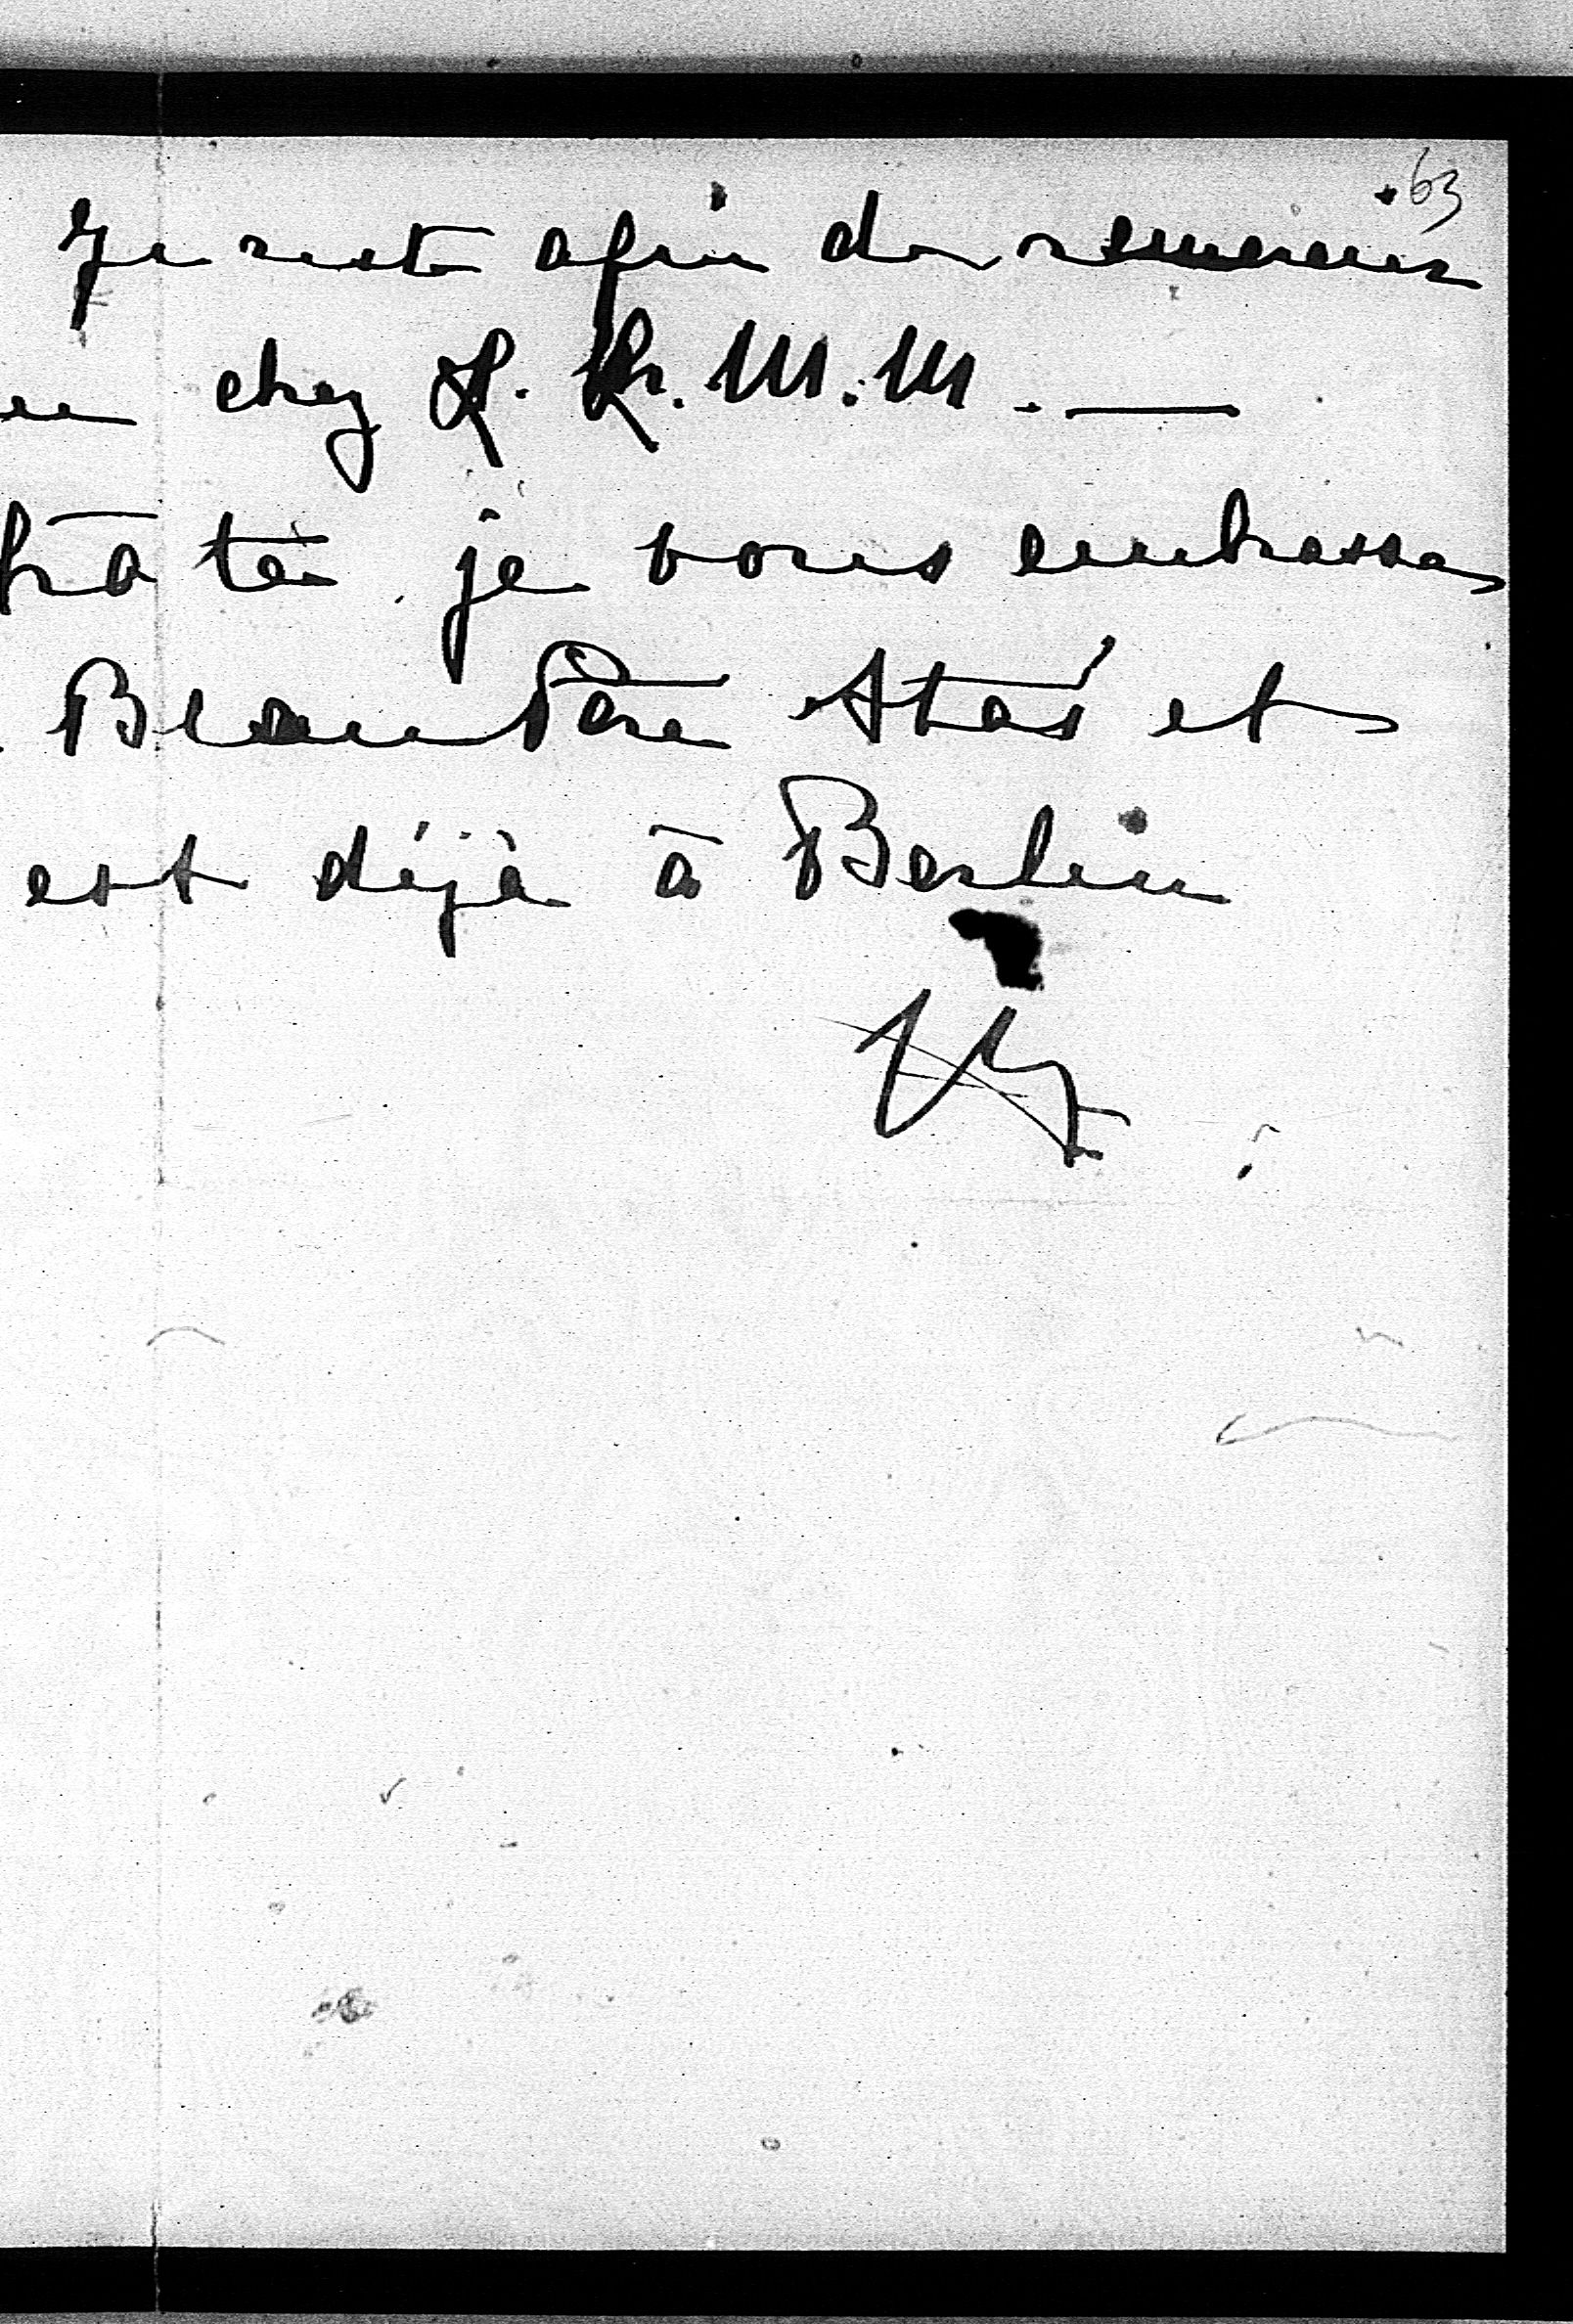 63
Je reste afin de remercier
chez L. L. M. M. —
hâte je vous embrasse
Beau Père Staś et
est déjà à Berlin